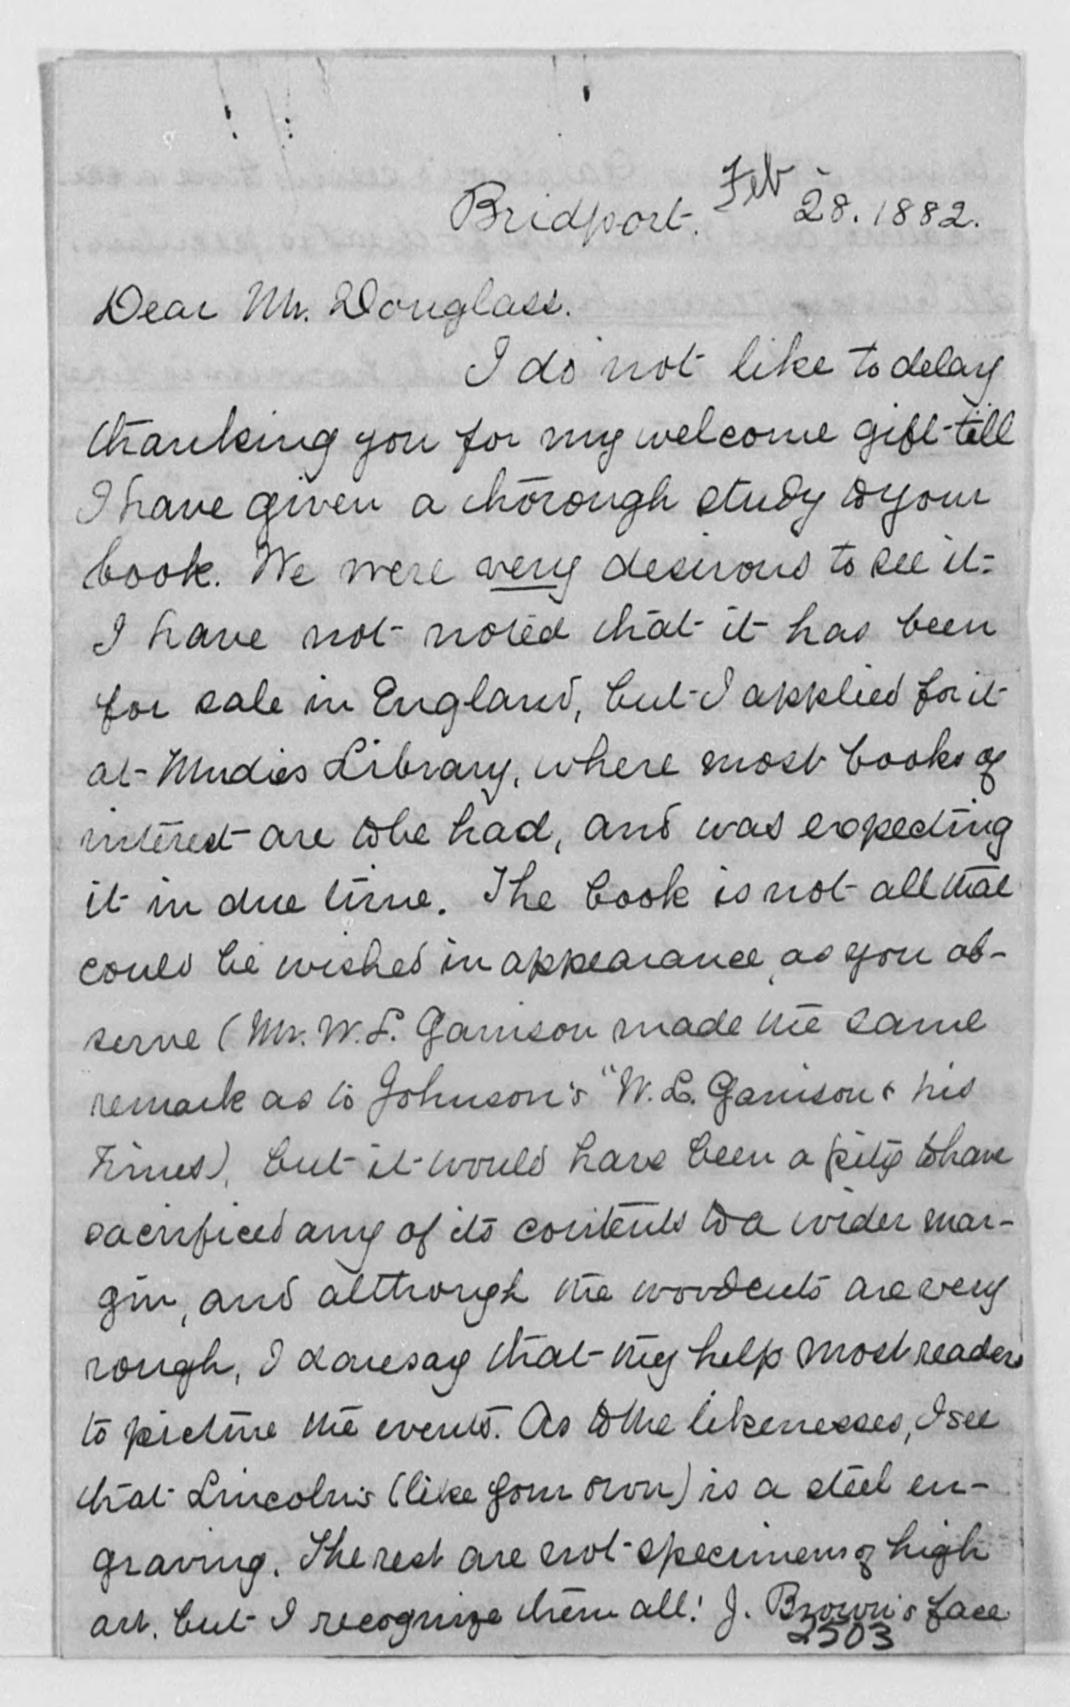 Bridport. Feb 28. 1882.
Dear Mr. Douglass.
I do not like to delay
thanking you for my welcome gift till
I have given a thorough study to your
book. We were very desirous to see it:
I have not noted that it has been
for sale in England, but I applied for it
at Mudies Library, where most books of
interest are to be had, and was expecting
it in due time. The book is not all that
could be wished in appearance, as you ob-
serve (Mr. W. L. Garrison made the same
remark as to Johnson's "W. L. Garrison & his
Times), but it would have been a pity to have
sacrificed any of its contents to a wider mar-
gin, and although the woodcuts are very
rough, I daresay that they help most readers
to picture the events. As to the likenesses, I see
that Lincoln's (like your own) is a steel en-
graving. The rest are not specimens of high
art, but I recognize them all! J. Brown's face
2503